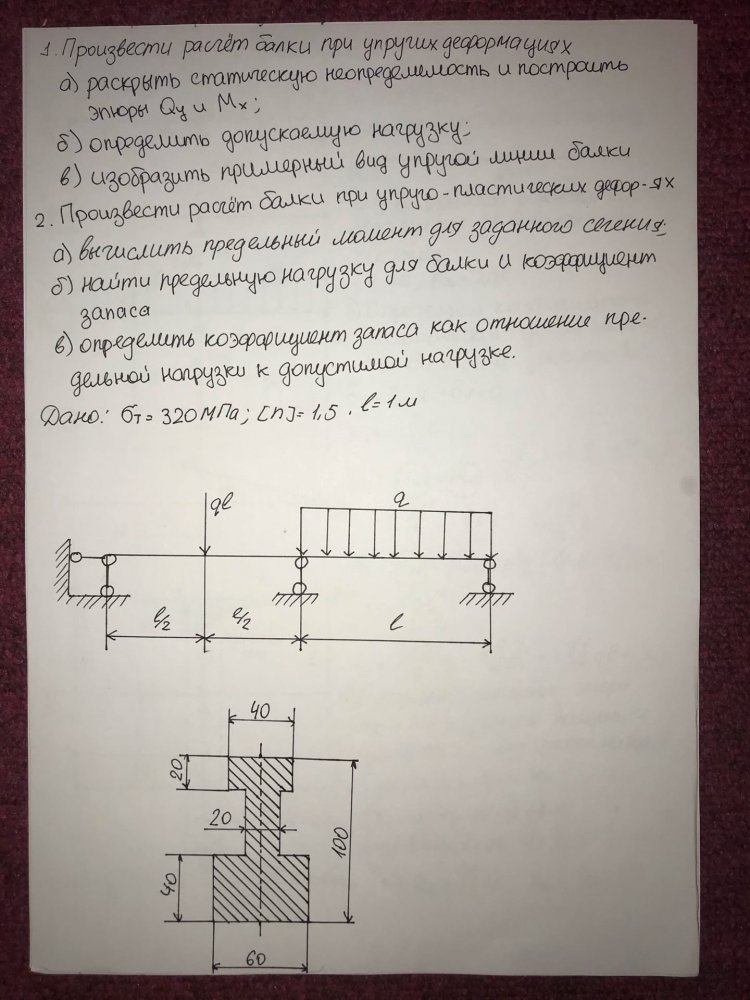 1. Произвести расчёт балки при упругих деформациях
а) раскрыть статическую неопределимость и построить
эпюры Qy и Mx;
б) определить допускаемую нагрузку;
в) изобразить примерный вид упругой линии балки
2. Произвести расчёт балки при упруго-пластических дефор-ях
а) вычислить предельный момент для заданного сечения;
б) найти предельную нагрузку для балки и коэффициент
запаса
в) определить коэффициент запаса как отношение пре-
дельной нагрузки к допустимой нагрузке.
Дано: σт = 320 МПа; [n]=1,5, l=1м
ql
q
l/2
l/2
l
40
20
20
100
40
60